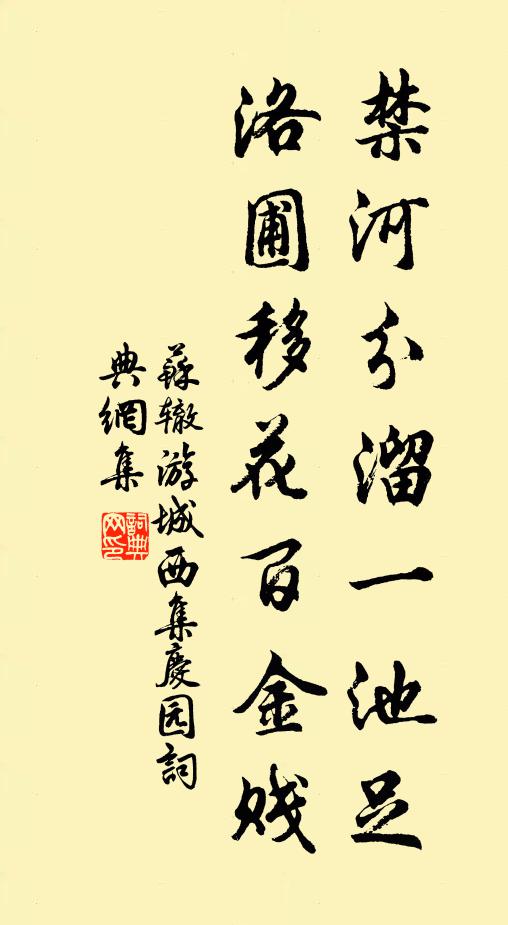 禁河分溜一池足
洛圃移花百金贱
蘇辙游城西集慶园詞
典網集
詞典
网印